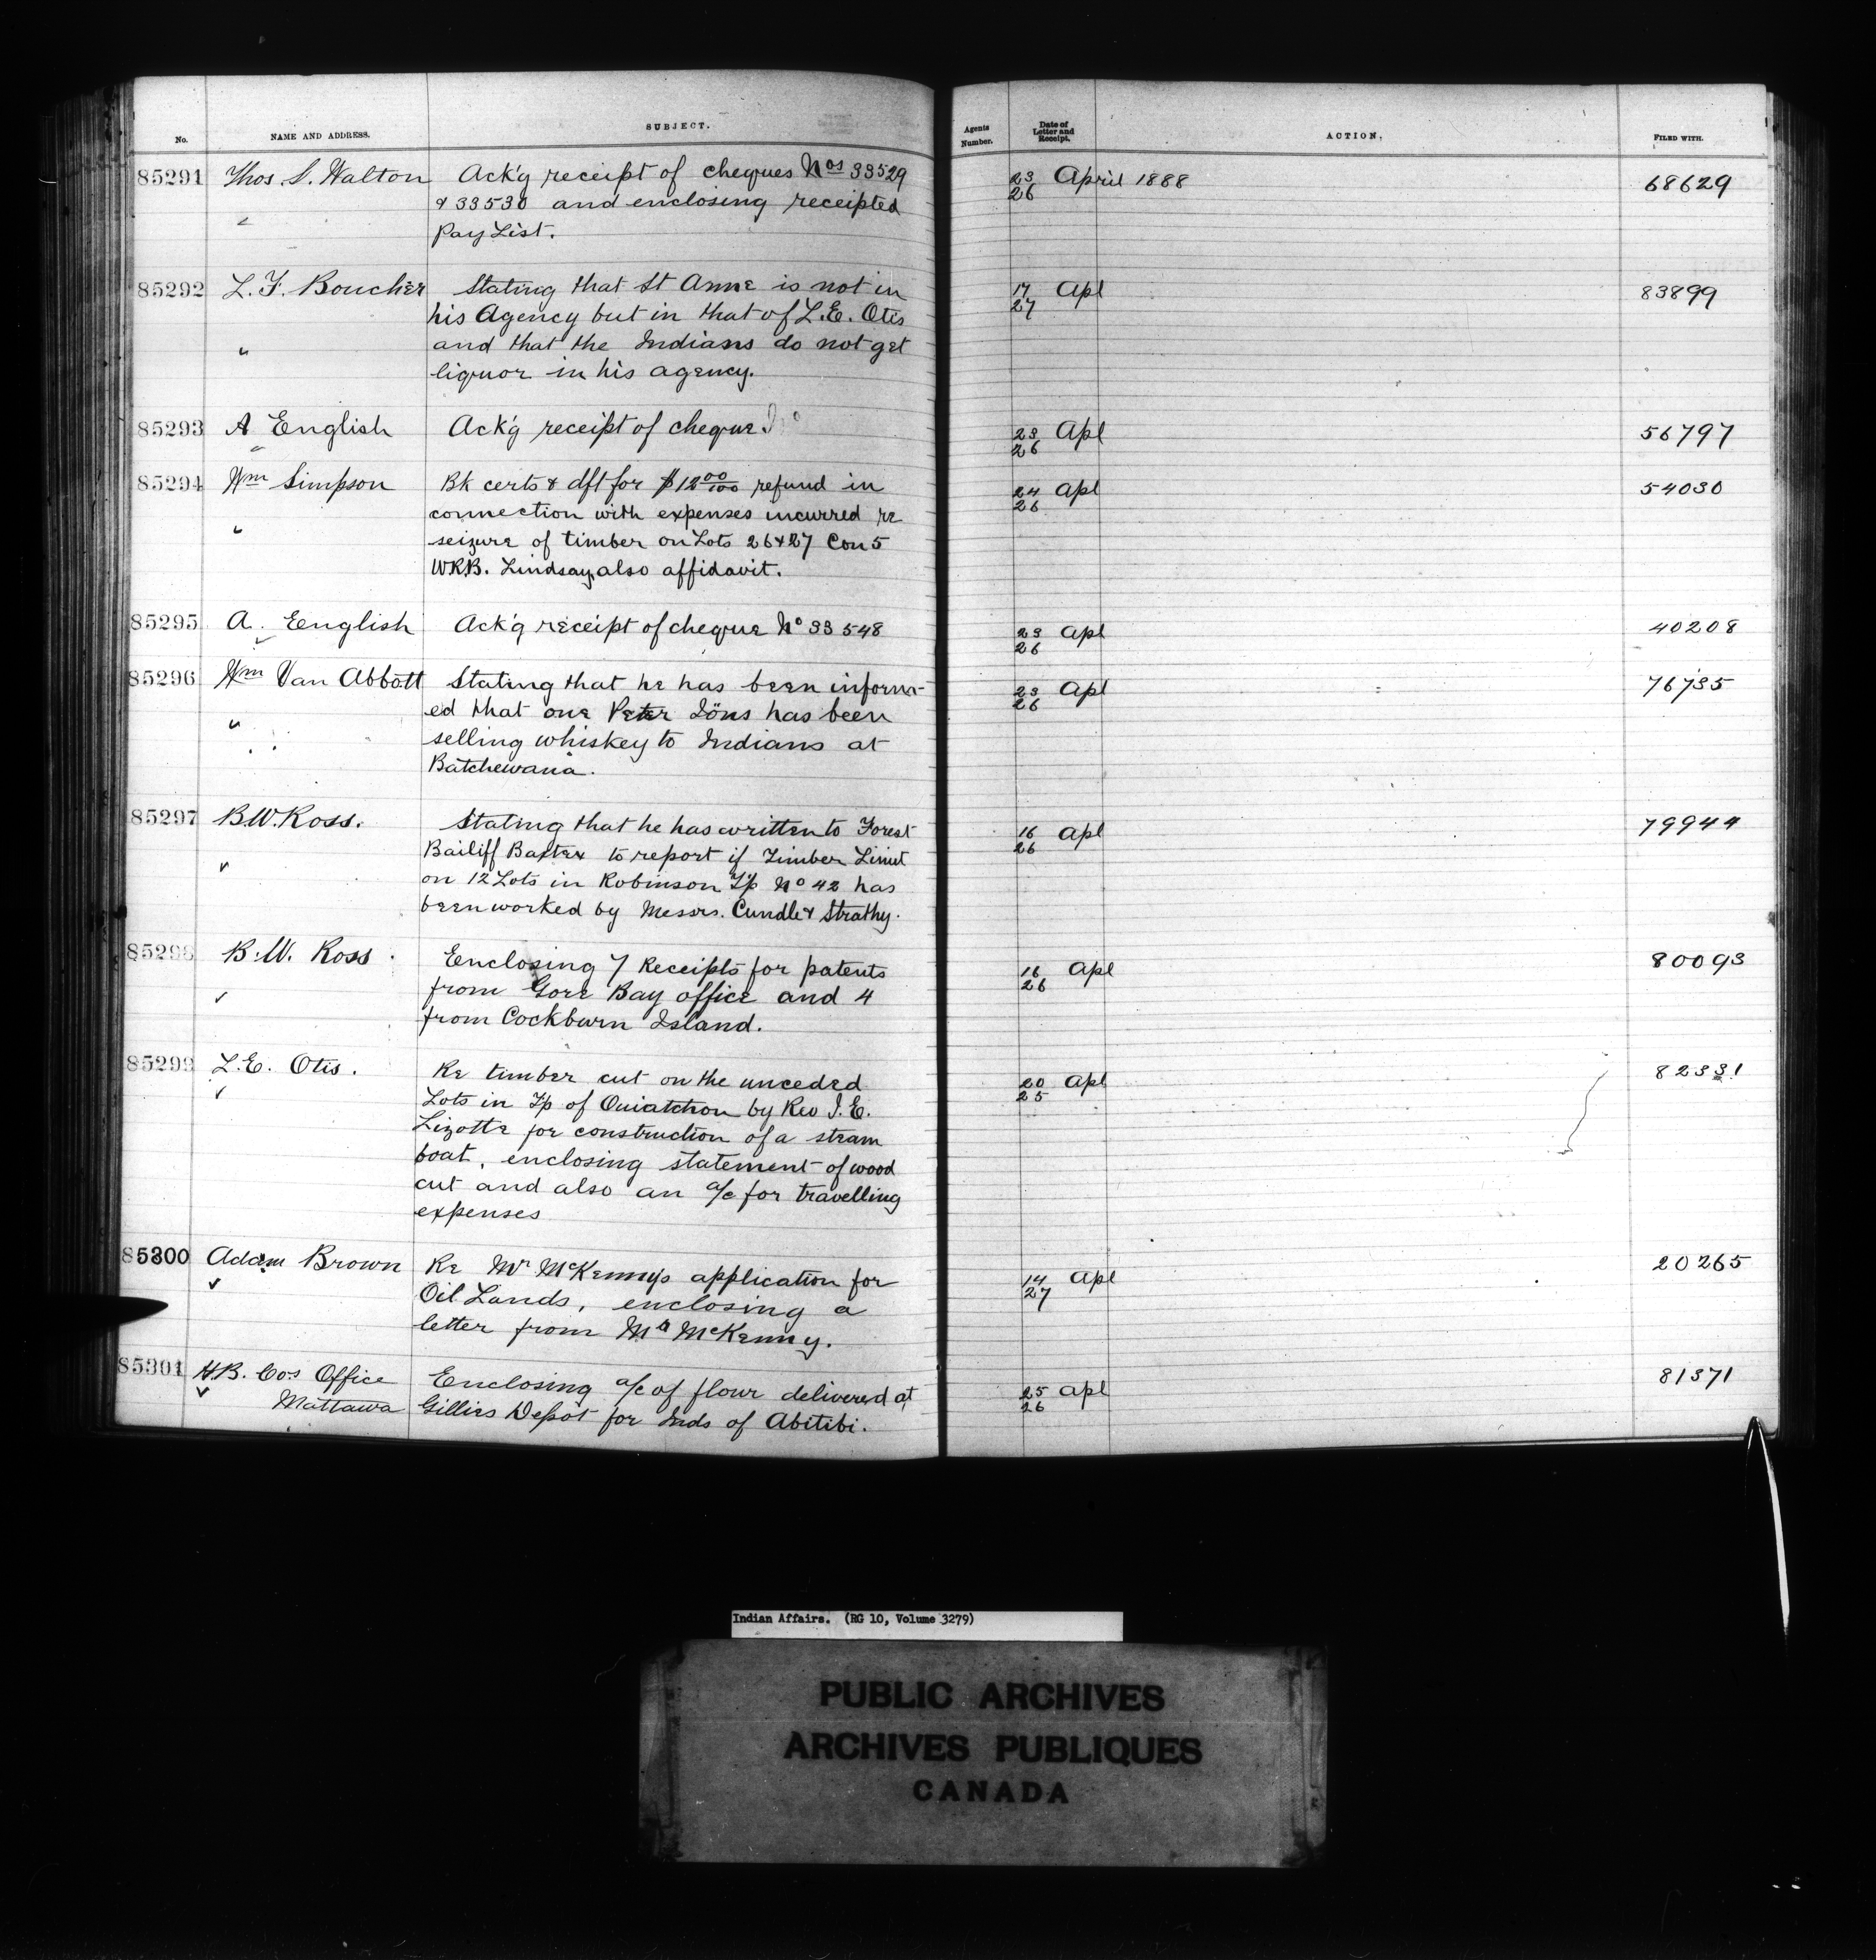 No. NAME AND ADDRESS. SUBJECT. Agents Number. Date of Letter and Receipt. ACTION. FILED WITH.
85291 Thos. S. Walton Ack'g receipt of cheques Nos 33529 23/26 April 1888 68629
& 33530 and enclosing receipted
Pay List.
85292 L. F. Boucher Stating that St Anne is not in 17/27 Apl 83899
his Agency but in that of L.E. Otis
" and that the Indians do not get
liquor in his agency.
85293 A English Ack'g receipt of cheque. No 23/26 Apl 56797
85294 Wm Simpson Bk certs & dft for $12 00/100 refund in 24/26 Apl 54030
connection with expenses incurred re
" seizure of timber on Lots 26&27 Con 5
W.R.B. Lindsay, also affidavit.
85295 A. English Ack'g receipt of cheque No 33548 23/26 Apl 40208
85296 Wm Van Abbott Stating that he has been inform- 23/26 Apl 76735
" ed that one Peter Jöns has been
selling whiskey to Indians at
Batchewana.
85297 B.W. Ross. Stating that he has written to Forest 16/26 Apl 79944
Bailiff Baxter to report if Timber Limit
on 12 Lots in Robinson Tp No 42 has
been worked by Messrs. Cundle & Strathy.
85298 B.W. Ross. Enclosing 7 Receipts for patents 16/26 Apl 80093
from Gore Bay office and 4
from Cockburn Island.
85299 L.E. Otis. Re timber cut on the unceded 20/25 Apl 82331
Lots in Tp of Ouiatchon by Rev J.E.
Lizotte for construction of a steam
boat, enclosing statement of wood
cut and also an a/c for travelling
expenses
85300 Adam Brown Re Mr McKenny's application for 14/27 Apl 20265
Oil Lands, enclosing a
letter from Mr McKenny.
85301 H.B. Cos Office Enclosing a/c of flour delivered at 25/26 Apl 81371
Mattawa Gillies Depôt for Inds of Abitibi.
Indian Affairs. (RG 10, Volume 3279)
PUBLIC ARCHIVES
ARCHIVES PUBLIQUES
CANADA